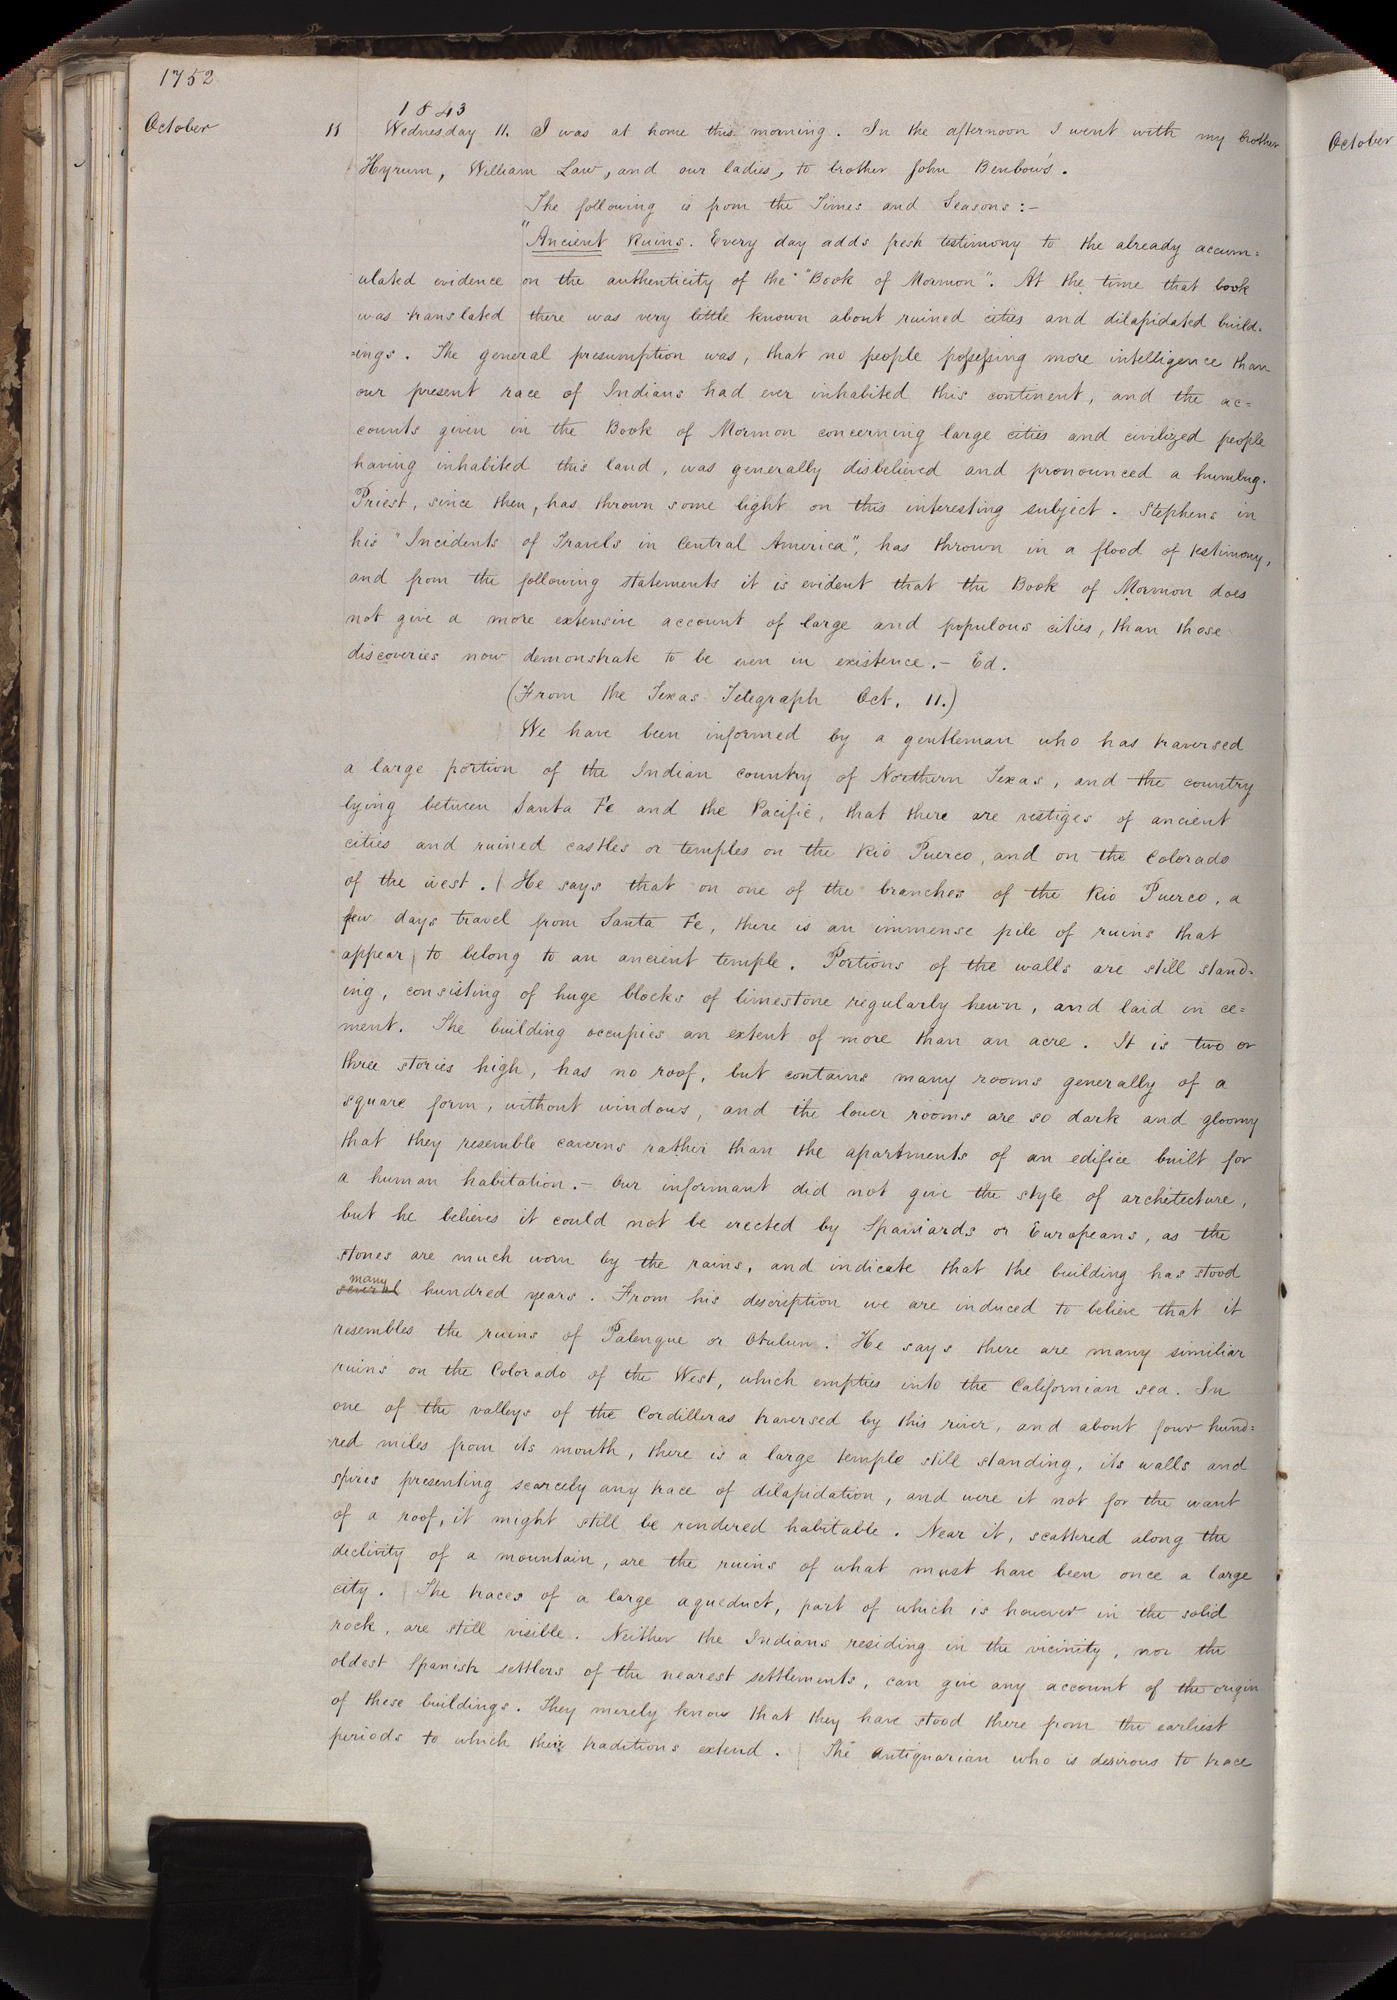 1752
1843
October
11 Wednesday 11. I was at home this morning. In the afternoon I went with my brother
Hyrum, William Law, and our ladies, to brother John Benbow's.
The following is from the Times and Seasons:-
"Ancient Ruins. Every day adds fresh testimony to the already accum=
ulated evidence on the authenticity of the "Book of Mormon". At the time that book
was translated there was very little known about ruined cities and dilapidated build-
=ings. The general presumption was, that no people possessing more intelligence than
our present race of Indians had ever inhabited this continent, and the ac=
counts given in the Book of Mormon concerning large cities and civilized people
having inhabited this land, was generally disbelieved and pronounced a humbug.
Priest, since then, has thrown some light on this interesting subject. Stephens in
his "Incidents of Travels in Central America", has thrown in a flood of testimony,
and from the following statements it is evident that the Book of Mormon does
not give a more extensive account of large and populous cities, than those
discoveries now demonstrate to be even in existence.- Ed.
(From the Texas Telegraph Oct. 11.)
We have been informed by a gentleman who has traversed
a large portion of the Indian country of Northern Texas, and the country
lying between Santa Fe and the Pacific, that there are vestiges of ancient
cities and ruined castles or temples on the Rio Puerco, and on the Colorado
of the west. He says that on one of the branches of the Rio Puerco, a
few days travel from Santa Fe, there is an immense pile of ruins that
appear to belong to an ancient temple. Portions of the walls are still stand=
ing, consisting of huge blocks of limestone regularly hewn, and laid in ce=
ment. The building occupies an extent of more than an acre. It is two or
three stories high, has no roof, but contains many rooms generally of a
square form, without windows, and the lower rooms are so dark and gloomy
that they resemble caverns rather than the apartments of an edifice built for
a human habitation.- Our informant did not give the style of architecture,
but he believes it could not be erected by Spaniards or Europeans, as the
stones are much worn by the rains, and indicate that the building has stood
many
several hundred years. From his description we are induced to believe that it
resembles the ruins of Palenque or Otulun. He says there are many similiar
ruins on the Colorado of the West, which empties into the Californian sea. In
one of the valleys of the Cordilleras traversed by this river, and about four hund=
-red miles from its mouth, there is a large temple still standing, its walls and
spires presenting scarcely any trace of dilapidation, and were it not for the want
of a roof, it might still be rendered habitable. Near it, scattered along the
declivity of a mountain, are the ruins of what must have been once a large
city. The traces of a large aqueduct, part of which is however in the solid
rock, are still visible. Neither the Indians residing in the vicinity, nor the
oldest Spanish settlers of the nearest settlements, can give any account of the origin
of these buildings. They merely know that they have stood there from the earliest
periods to which their traditions extend. The Antiquarian who is desirous to trace
October